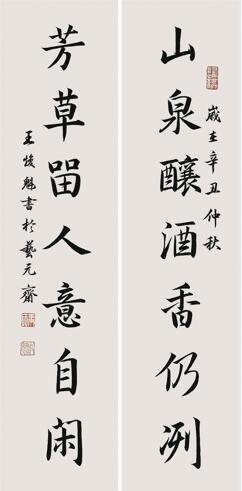 山泉釀酒香仍冽
歲在辛丑仲秋
芳草留人意自闲
王俊魁書於藝元齋